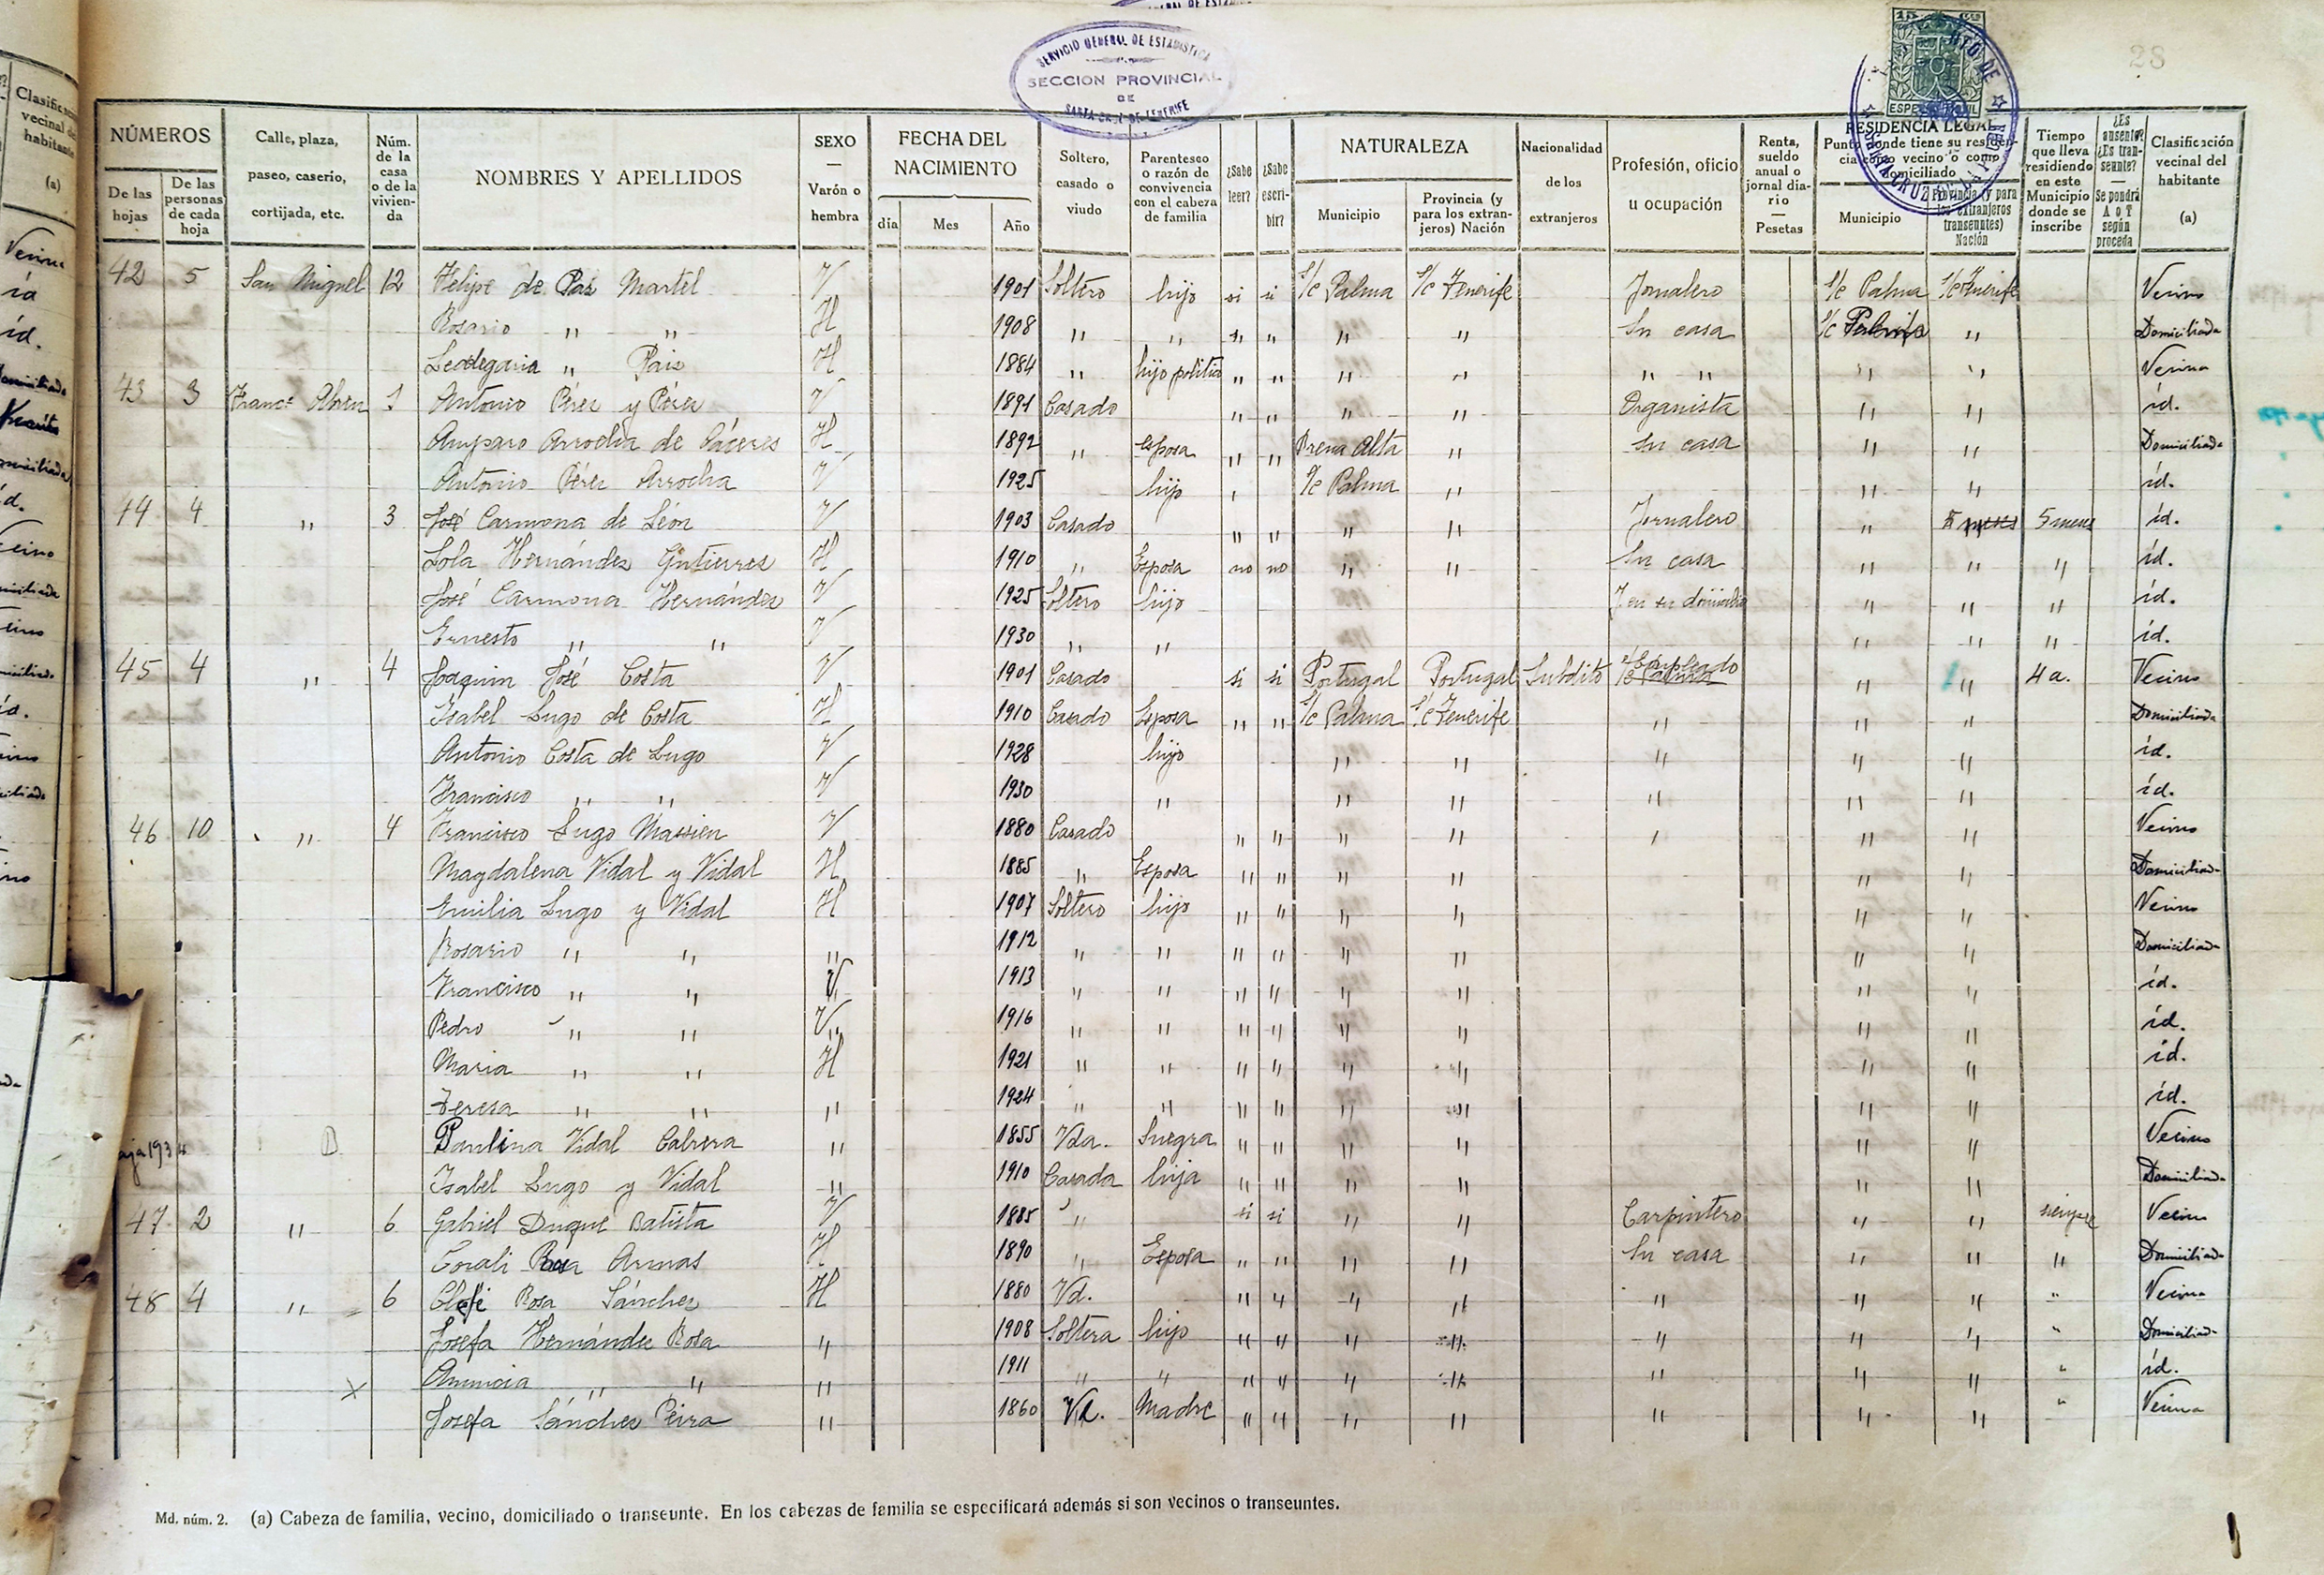 SERVICIO GENERAL DE ESTADISTICA
SECCION PROVINCIAL
DE
SANTA CRUZ DE TENERIFE
28
ESPECIAL MOVIL
SANTA CRUZ DE LA PALMA
NÚMEROS
De las hojas
De las personas de cada hoja
Calle, plaza, paseo, caserío, cortijada, etc.
Núm. de la casa o de la vivienda
NOMBRES Y APELLIDOS
SEXO — Varón o hembra
FECHA DEL NACIMIENTO
día Mes Año
Soltero, casado o viudo
Parentesco o razón de convivencia con el cabeza de familia
¿Sabe leer?
¿Sabe escribir?
NATURALEZA
Municipio
Provincia (y para los extranjeros) Nación
Nacionalidad de los extranjeros
Profesión, oficio u ocupación
Renta, sueldo anual o jornal diario — Pesetas
RESIDENCIA LEGAL
Punto donde tiene su residencia como vecino o como domiciliado
Municipio
Provincia (y para los extranjeros transeuntes) Nación
Tiempo que lleva residiendo en este Municipio donde se inscribe
¿Es ausente? ¿Es transeunte? Se pondrá A o T según proceda
Clasificación vecinal del habitante (a)
42 5 San Miguel 12 Felipe de Paz Martel V 1901 Soltero hijo si si S/c Palma S/c Tenerife Jornalero S/c Palma S/c Tenerife Vecino
Rosario " " H 1908 " " " " " " Su casa S/c Palma " Domiciliada
Leodegaria " Pais H 1884 " hijo politico " " " " " " " " Vecina
43 3 Franc.º Abreu 1 Antonio Pérez y Pérez V 1891 Casado " " " " Organista " " id.
Amparo Arrocha de Páceres H 1892 " Esposa " " Brena Alta " Su casa " " Domiciliada
Antonio Pérez Arrocha V 1925 hijo S/c Palma " " " id.
44 4 " 3 José Carmona de León V 1903 Casado " " " " Jornalero " 5 meses 5 meses id.
Lola Hernández Gutierres H 1910 " Esposa no no " " Su casa " " " id.
José Carmona Hernández V 1925 Soltero hijo " " " id.
Ernesto " " V 1930 " " " " " id.
45 4 " 4 Joaquin José Costa V 1901 Casado si si Portugal Portugal Subdito Empleado " " 4 a. Vecino
Isabel Lugo de Costa H 1910 Casado Esposa " " S/c Palma S/c Tenerife " " " Domiciliada
Antonio Costa de Lugo V 1928 hijo " " " " " id.
Francisco " " V 1930 " " " " " " id.
46 10 " 4 Francisco Lugo Massieu V 1880 Casado " " " " " " Vecino
Magdalena Vidal y Vidal H 1885 " Esposa " " " " " " Domiciliada
Emilia Lugo y Vidal H 1907 Soltero hijo " " " " " " Vecino
Rosario " " " 1912 " " " " " " " " Domiciliada
Francisco " " V 1913 " " " " " " " " id.
Pedro " " V 1916 " " " " " " " " id.
Maria " " H 1921 " " " " " " " " id.
Teresa " " " 1924 " " " " " " " " id.
1934 B Paulina Vidal Cabrera " 1855 Vda. Suegra " " " " " " Vecino
Isabel Lugo y Vidal " 1910 Casada hija " " " " " " Domiciliada
47 2 " 6 Gabriel Duque Batista V 1885 " si si " " Carpintero " " siempre Vecino
Corali Rosa Armas H 1890 " Esposa " " " " Su casa " " " Domiciliada
48 4 " 6 Clofé Rosa Sánchez H 1880 Vd. " " " " " " " " Vecina
Josefa Hernández Rosa " 1908 Soltera hijo " " " " " " " " Domiciliada
Anuncia " " " 1911 " " " " " " " " " " id.
Josefa Sánchez Peira " 1860 Vd. Madre " " " " " " " " Vecina
Md. núm. 2. (a) Cabeza de familia, vecino, domiciliado o transeunte. En los cabezas de familia se especificará además si son vecinos o transeuntes.